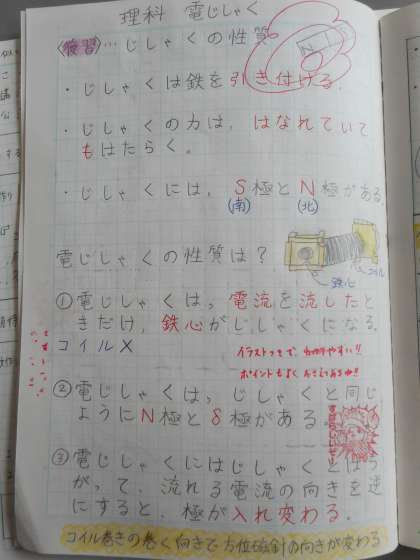 理科 電じしゃく
〈復習〉…じしゃくの性質
N S
・じしゃくは鉄を引き付ける。
・じしゃくの力は、はなれていて
もはたらく。
・じしゃくには、S極とN極がある。
(南) (北)
電じしゃくの性質は?
鉄心 コイル
①電じしゃくは、電流を流したと
きだけ、鉄心がじしゃくになる。
コイル×
イラストつきで、わかりやすい!!
ポイントもよくおさえてあるゆ!!
②電じしゃくは、じしゃくと同じ
ようにN極とS極がある。
③電じしゃくにはじしゃくとはち
がって、流れる電流の向きを逆
にすると、極が入れ変わる。
コイル巻きの巻く向きで方位磁針の向きが変わる